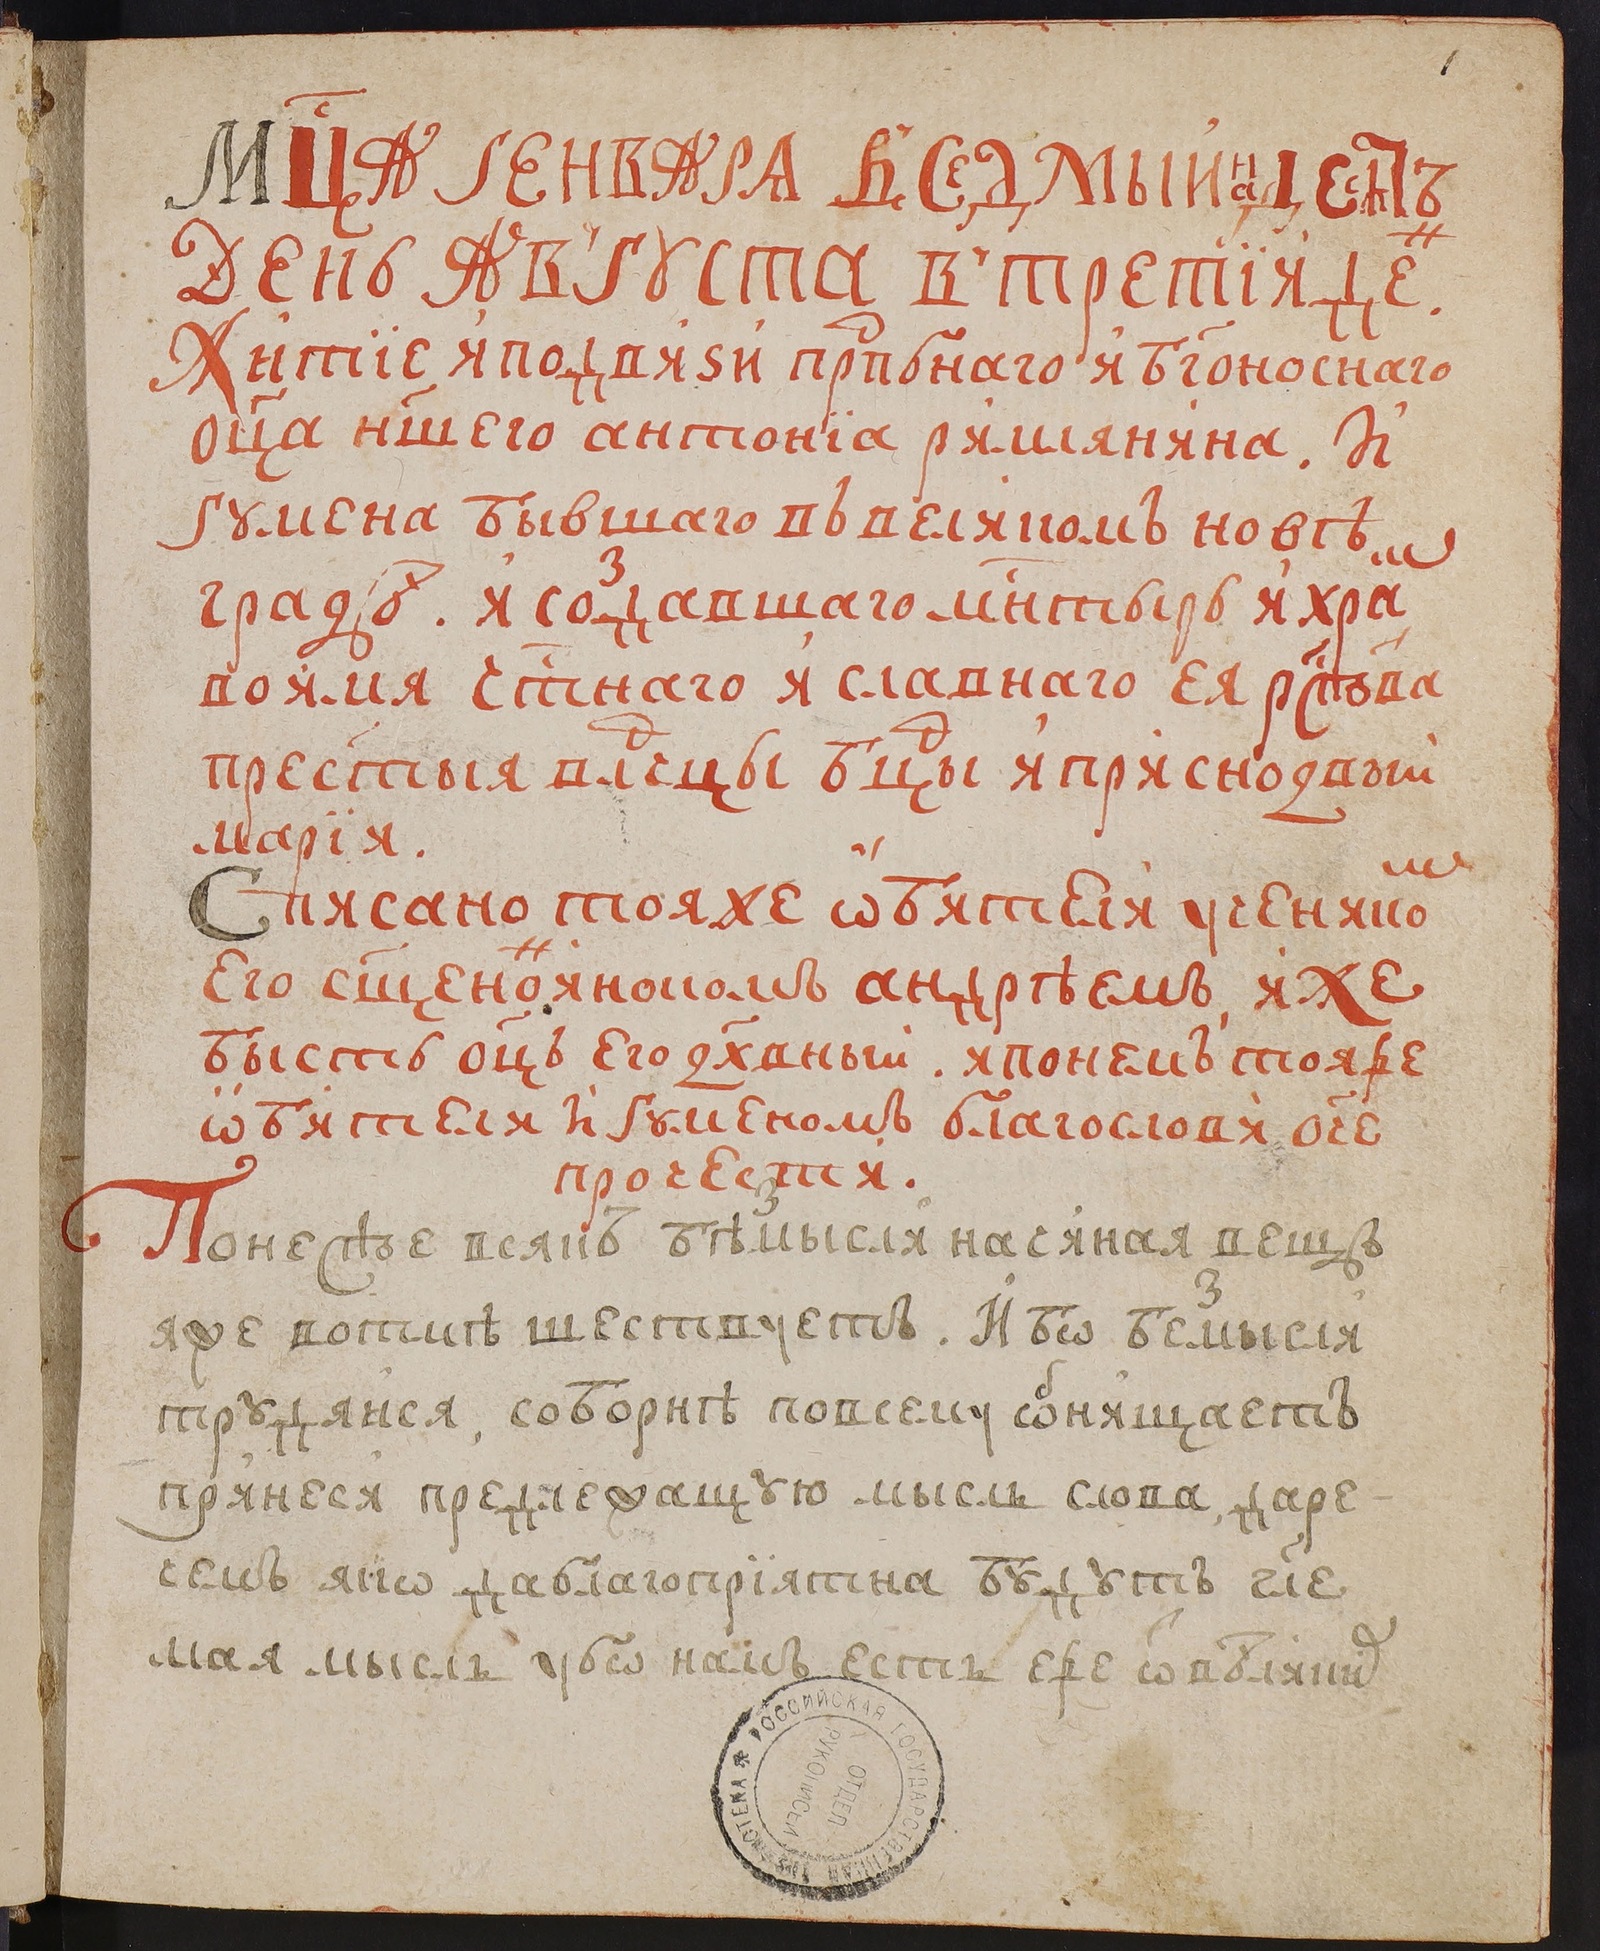 1
Мц҃а генваря в' седмыйнадесять
день август'а в' третій де҃н.
Житіе и подвиѕи прпⷣбнаго и бг҃оноснаго
оц҃а нш҃его антоніа римлянина. И
гумена бывшаго въ великомъ новѣ
градѹ. и создавшаго мн҃тырь и храм
во имя чт҃наго и славнаго ея ржс҃тва
прес҃тыя влⷣчцы бцⷣы и приснодв҃ыи
маріи.
Списано тояже ѡбители ѹчеником
его сщ҃енноинокомъ андрѣемъ, иже
бысть оц҃ъ его дх҃вный. и по немъ тояже
ѡбители игуменомъ благослови оч҃е
прочести.
Понеже всякъ бѣзмысли начиная вещь
яже во тмѣ шествуетъ. Ибо безмысли
трудяйся, соборнѣ по всему ѡбнищаетъ
принеси предлежащую мысль слова, да ре-
чемъ якѡ да благопріятна будутъ гл҃е
мая мысль ѹбѡ намъ есть еже ѡ в
РОССИЙСКАЯ ГОСУДАРСТВЕННАЯ БИБЛИОТЕКА
ОТДЕЛ
РУКОПИСЕЙ